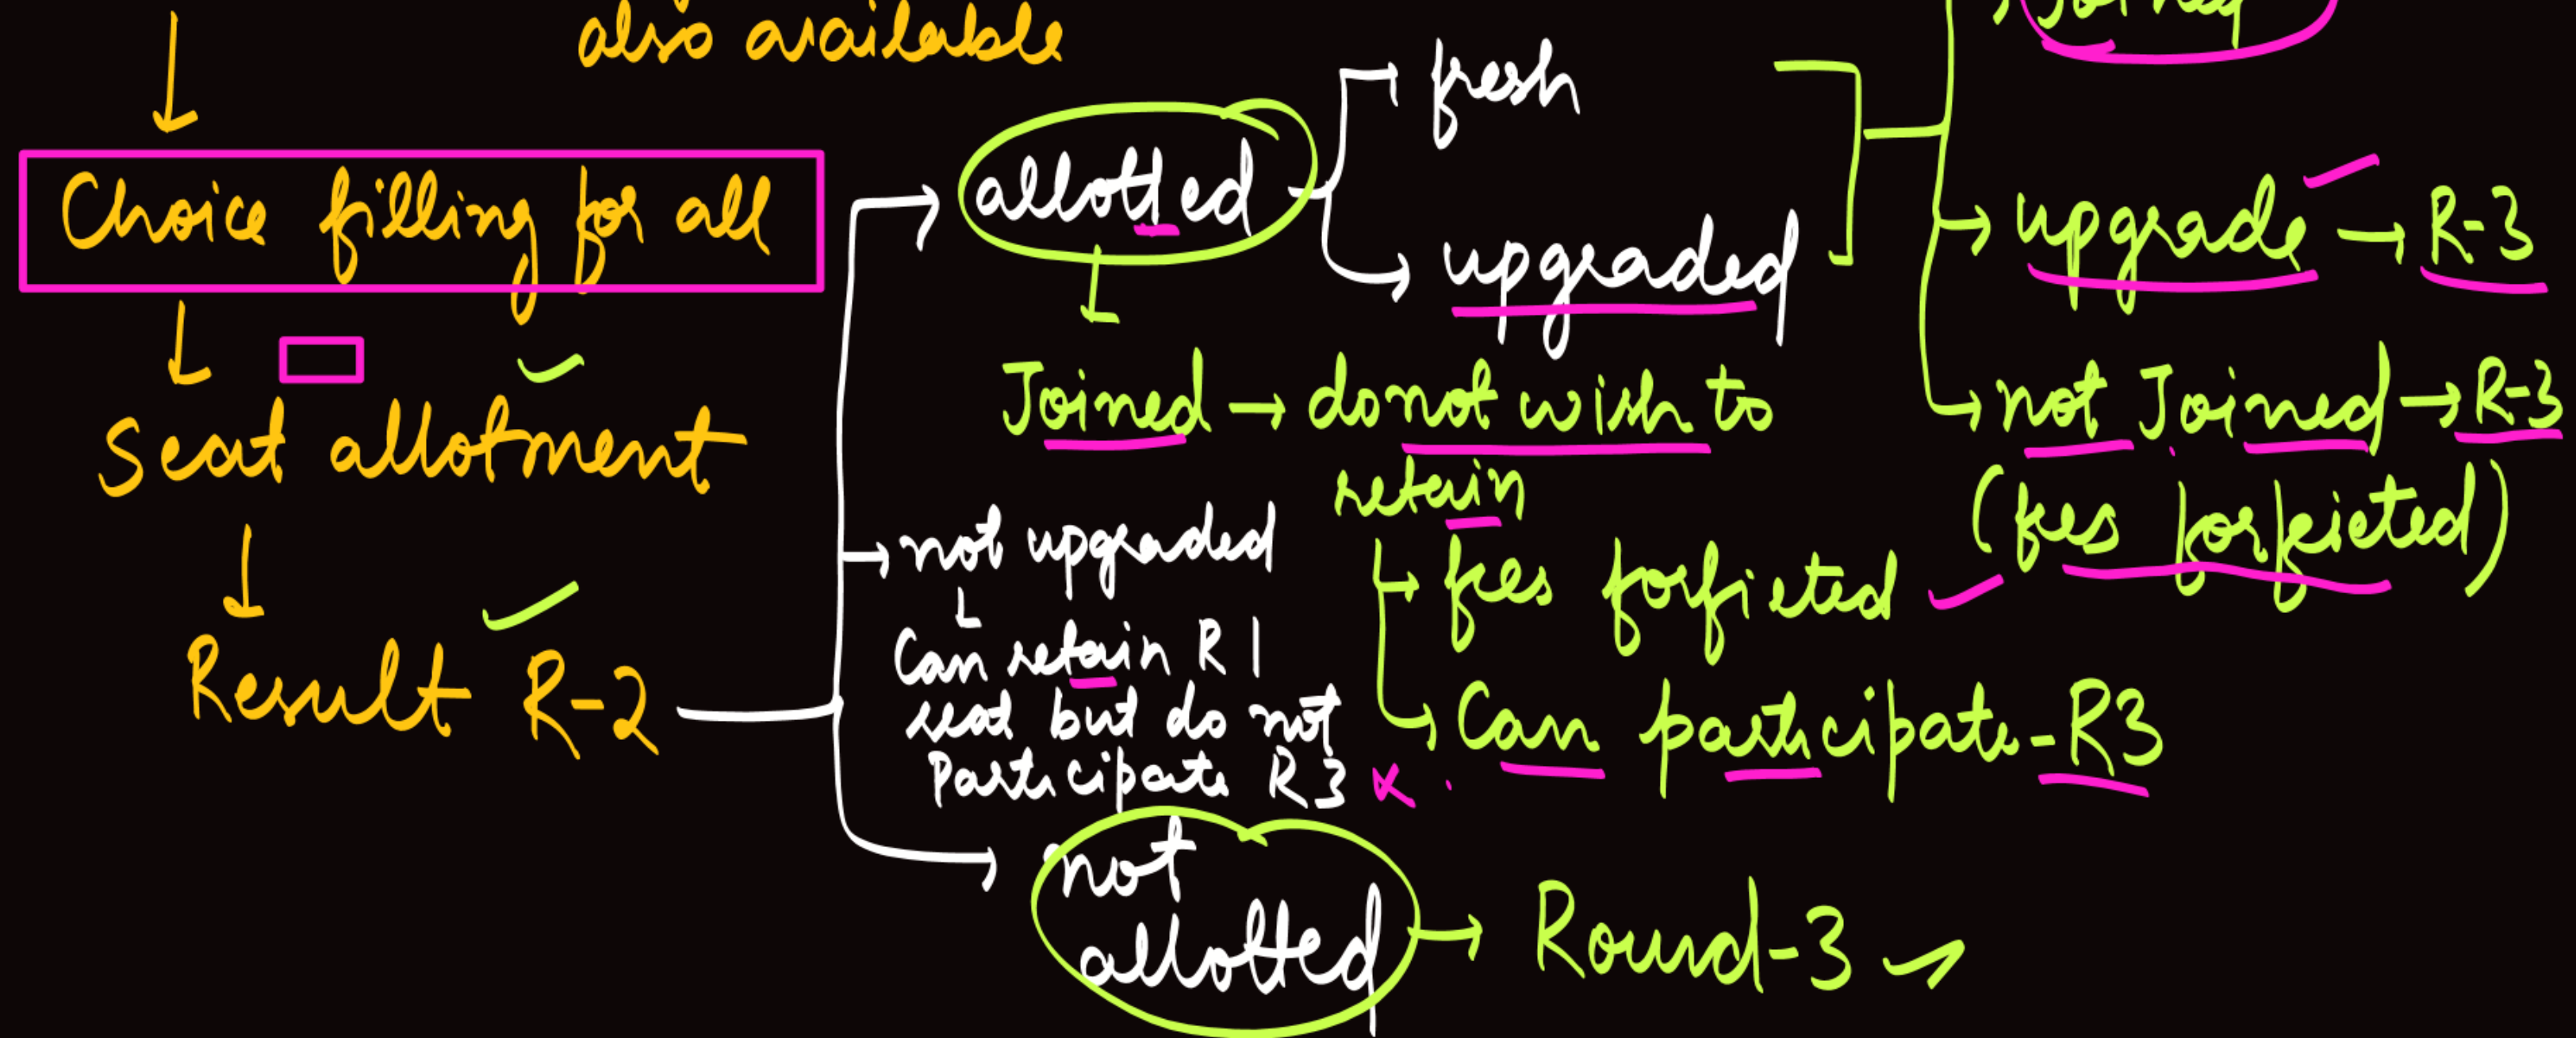 also available
Choice filling for all
Seat allotment
Result R-2
allotted
fresh
upgraded
Joined → do not wish to
retain
fees forfieted
Can participate - R3
not upgraded
Can retain R1
seat but do not
Participate R3 x
not
allotted
→ Round-3
Joined
upgrade → R-3
not Joined → R-3
(fees forfieted)